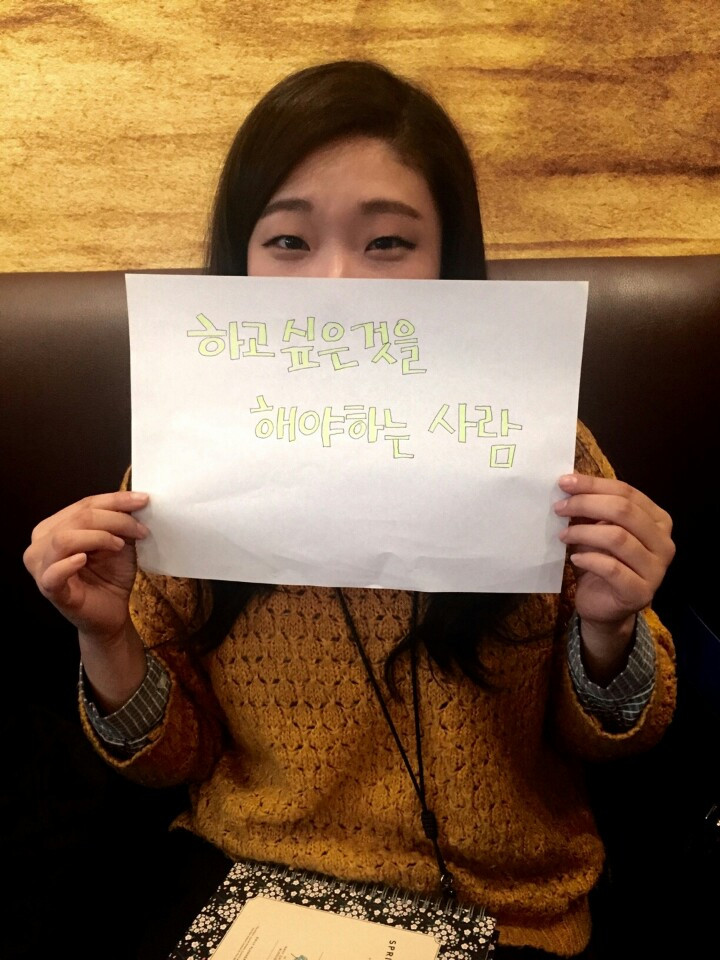 하고 싶은 것을
해야하는 사람
SPRI